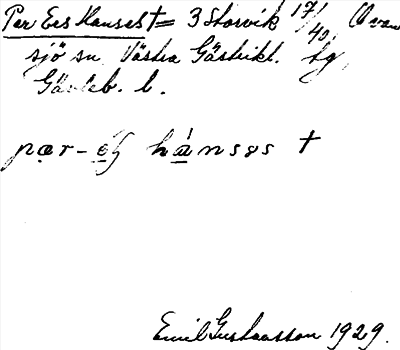 Per Ers Hanses † = 3 Storvik 17/40, Ovan
sjö sn Västra Gästrikl. tg,
Gävleb. l.
pær-eʂ hánsəs †
Emil Gustavsson 1929.